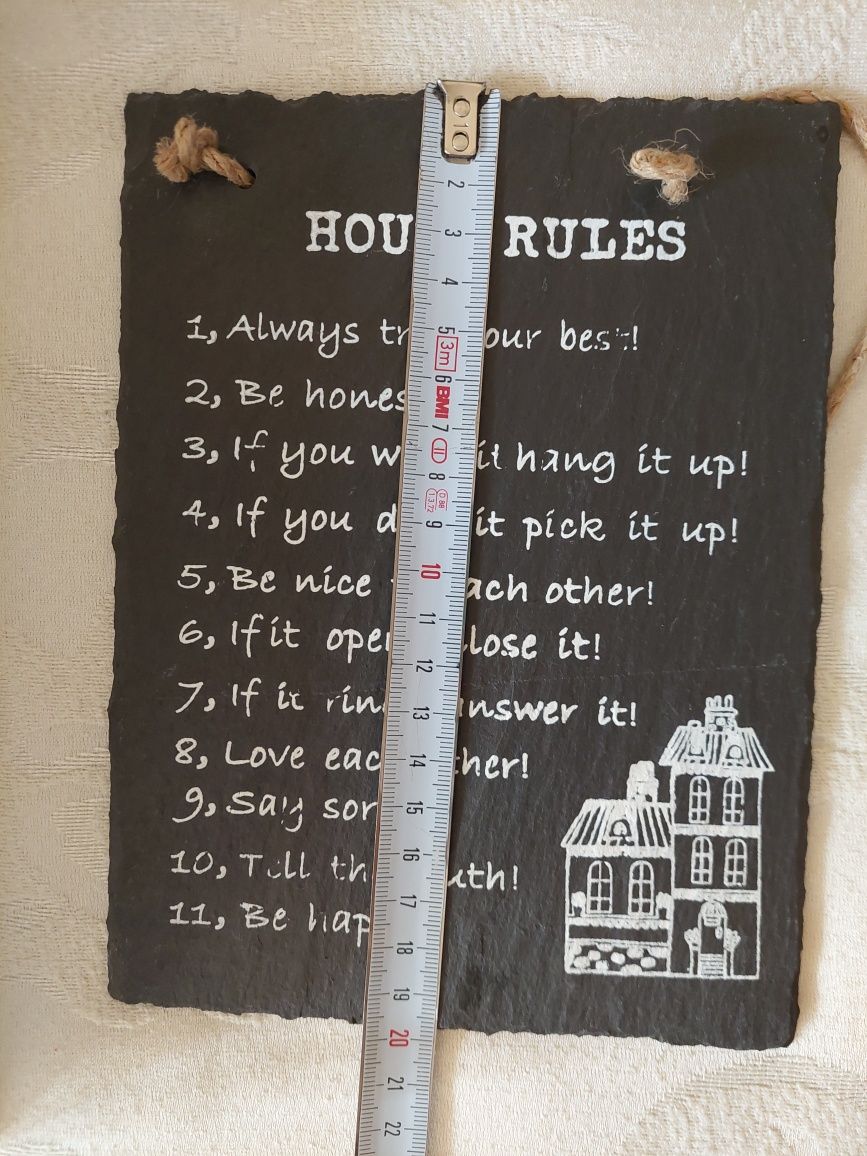 HOU RULES
1, Always tr our best!
2, Be hones
3, If you w it hang it up!
4, If you d it pick it up!
5, Be nice ach other!
6, If it ope lose it!
7, If it rin nswer it!
8, Love eac ther!
9, Say sor
10, Tell th uth!
11, Be hap
1
2
3
4
5
3m
6
BMI
7
II
8
9
10
11
12
13
14
15
16
17
18
19
20
21
22